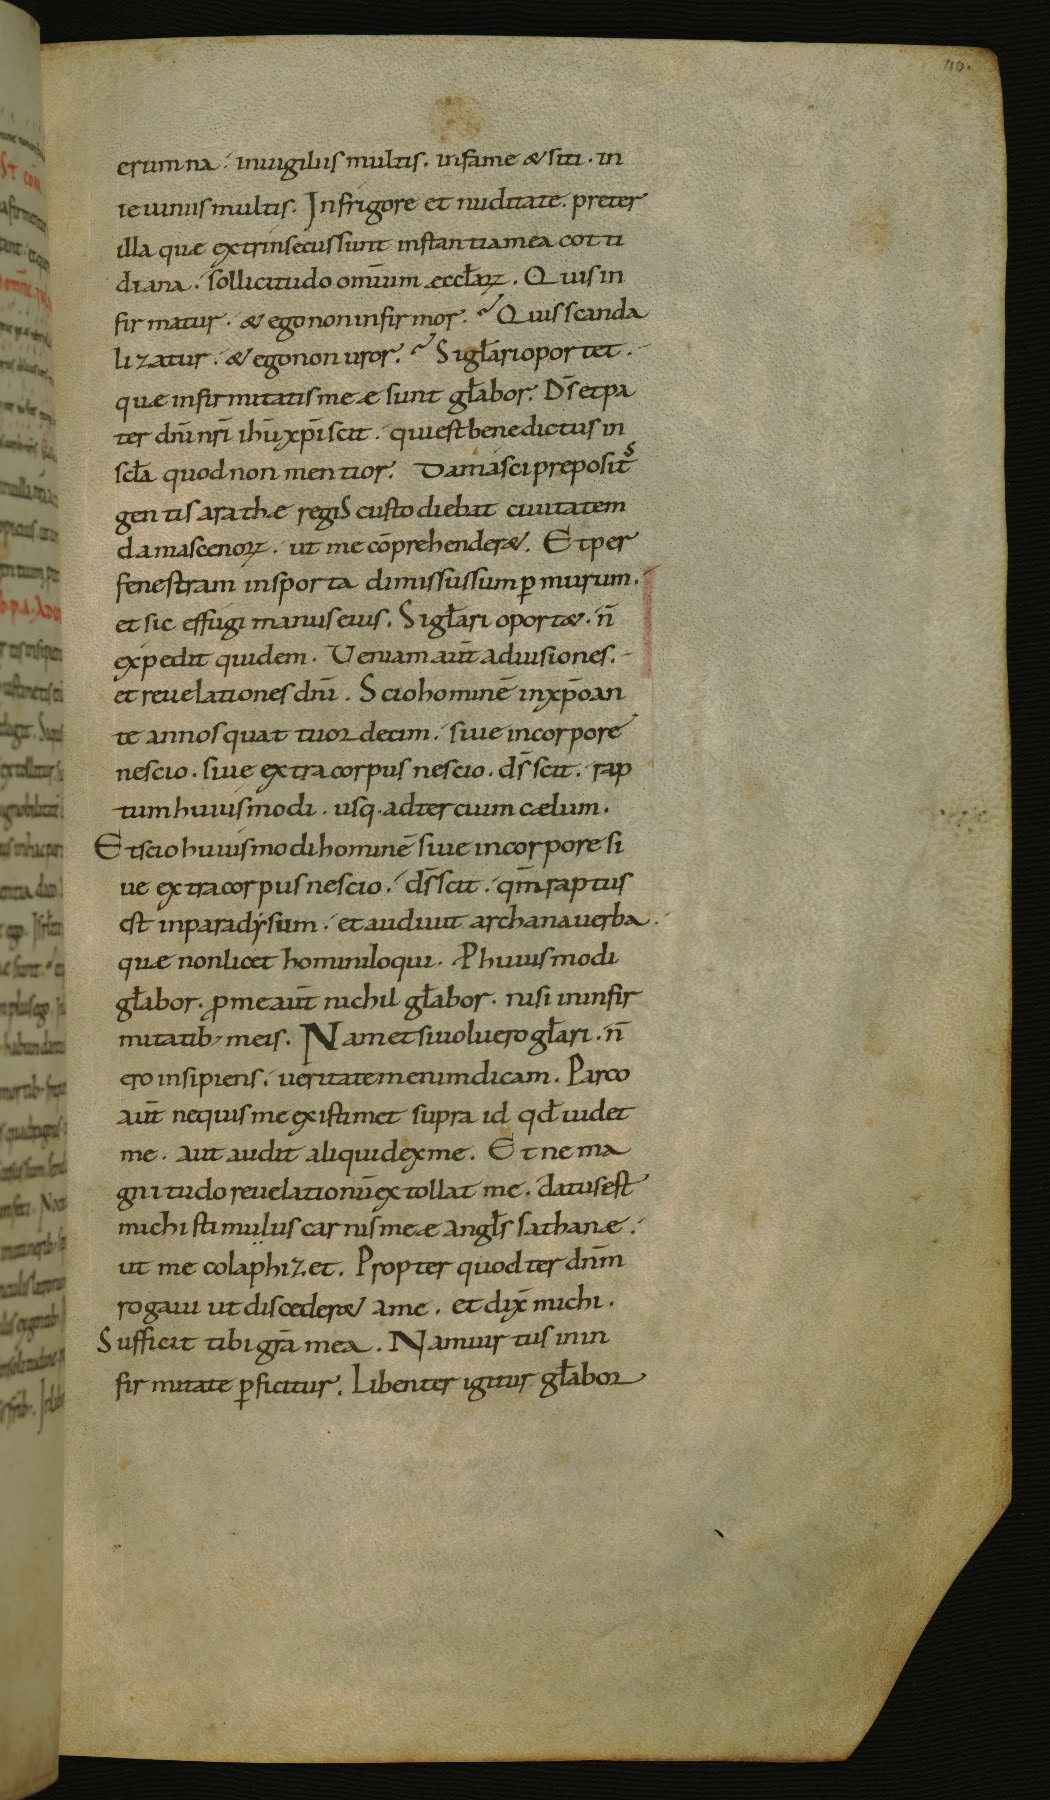 40.
erumna · inuigiliis multis · in fame & siti · in
ieiuniis multis. In frigore et nuditate · preter
illa quæ extrinsecus sunt instantia mea cotti
diana · sollicitudo omīum æccłarꝝ. Quis in
firmatur · & ego non infirmor. Quis scanda
lizatur · & ego non uror. Si głari oportet ·
quæ infirmitatis meæ sunt głabor. D̄s et pa
ter dn̄i nr̄i ih̄u xp̄i scit · qui est benedictus in
scła quod non mentior. Damasci preposit᷒
gentis arathæ regis custodiebat ciuitatem
damascenorꝝ · ut me cōprehender&. Et per
fenestram in sporta dimissus sum ꝑ murum.
et sic effugi manus eius. Si głari oport& · n̄
expedit quidem. Ueniam aūt ad uisiones
et reuelationes dn̄i. Scio hominē in xp̄o an
te annos quattuordecim · siue in corpore
nescio · siue extra corpus nescio · d̄s scit · rap
tum huiusmodi · usq· ad tercium cælum.
Et scio huiusmodi hominē siue in corpore si
ue extra corpus nescio · d̄s scit · qm̄ raptus
est in paradysum · et audiuit archana uerba
quæ non licet homini loqui. P huiusmodi
głabor · ꝓ me aūt nichil głabor · nisi in infir
mitatib; meis. Nam et si uoluero głari · n̄
ero insipiens · ueritatem enim dicam. Parco
aūt ne quis me existimet supra id qđ uidet
me · aut audit aliquid ex me. Et ne ma
gnitudo reuelationū extollat me · datus est
michi stimulus carnis meæ angłs sathanæ ·
ut me colaphizet. Propter quod ter dn̄m
rogaui ut discederæ a me · et dix̄ michi ·
Sufficit tibi gr̄a mea. Nam uirtus in in
firmitate ꝑficitur. Libenter igitur głabor